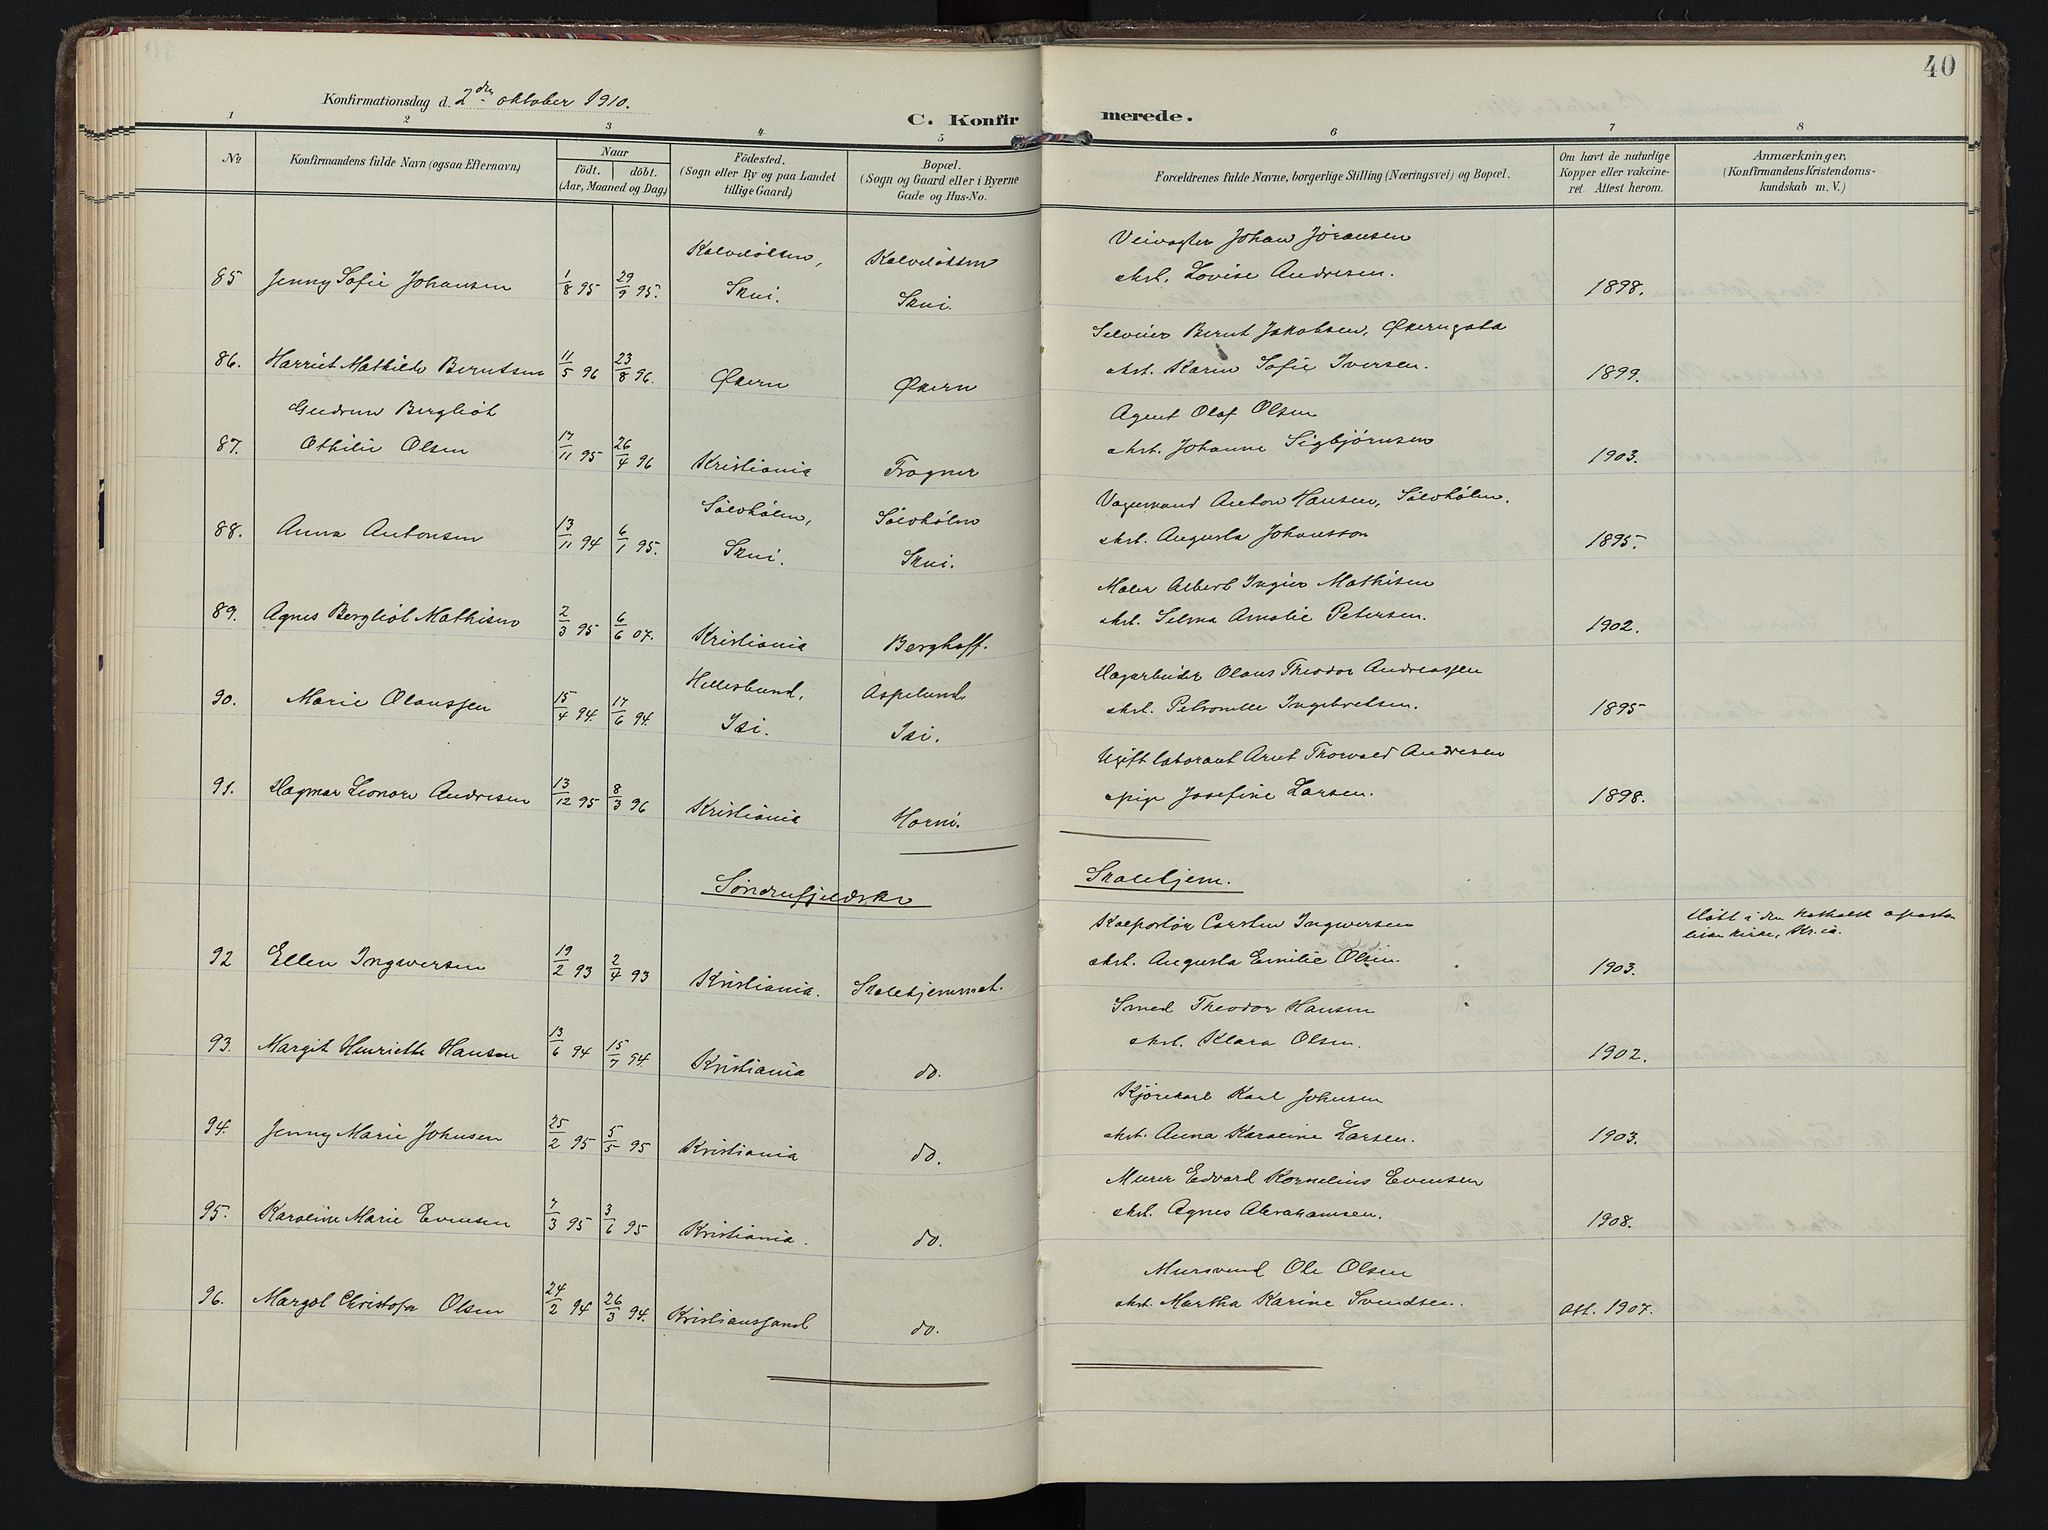 40
Konfirmationsdag d. 2den oktober 1910.
C. Konfirmerede.
1 2 3 4 5 6 7 8
No
Konfirmandens fulde Navn (ogsaa Efternavn)
Naar
födt. döbt.
(Aar, Maaned og Dag)
Födested.
(Sogn eller By og paa Landet
tillige Gaard)
Bopæl.
(Sogn og Gaard eller i Byerne
Gade og Hus-No.
Forældrenes fulde Navne, borgerlige Stilling (Næringsvei) og Bopæl.
Om havt de naturlige
Kopper eller vakcine-
ret. Attest herom.
Anmærkninger.
(Konfirmandens Kristendoms-
kundskab m. V.)
Veivogter Johan Jöransen
85 Jenny Sofie Johansen 1/8 95 29/9 95. Skui. Skui. skst. Lovise Andresen. 1898.
Bernt Jakobsen, Økerngata
86. Harriet Mathilde Berntsen 11/5 96 23/8 96. Økern Økern ekst. Karen Sofie Iversen. 1899.
Gudrun Bergliot Agent Olaf Olsen
87. Othilie Olsen 17/11 95 26/4 96 Kristiania Frogner ekst. Johanne Sigbjørnsen 1903.
Sølvhølen, Sølvhølen Anton Hansen, Sølvhølen.
88. Anna Antonsen 13/11 94 6/1 95. Skui. Skui. ekst. Augusta Johansson 1895.
Maler Albert Ingier Mathisen
89. Agnes Bergliot Mathisen 2/3 95 6/6 07. Kristiania Berghoff. ekst. Selma Amalie Petersen. 1902.
Aspelund Dagarbeider Olaus Theodor Andreassen
90. Marie Olaussen 15/4 94. 17/6 94. Isi. Isi. ekst. Petronelle Ingebretsen. 1895
Ugift laborant Arnt Thorvald Andresen
91. Dagmar Leonore Andresen 13/12 95 8/3 96 Kristiania Horni. pige Josefine Larsen. 1898.
Søndenfjeldske Skolehjem.
Kolportør Carsten Ingwersen Døbt i den katholsk aposto
liske kirke, Kr.ia.
92 Ellen Ingwersen 19/2 93 2/4 93 Kristiania. Skolehjemmet. ekst. Augusta Emilie Olsen. 1903.
Smed Theodor Hansen
93. Margit Henriette Hansen 13/6 94 15/7 94. Kristiania do. ekst. Klara Olsen. 1902.
Kjørekarl Karl Johnsen
94. Jenny Marie Johnsen 25/2 95 5/5 95 Kristiania do. ekst. Anna Karoline Larsen. 1903.
Murer Edvard Kornelius Evensen
95. Karoline Marie Evensen 7/3 95 3/6 95 Kristiania. do. ekst. Agnes Abrahamsen. 1908.
Mursvend Ole Olsen
96. Margot Christofa Olsen 24/2 94 26/3 94. Kristianssand do. ekst. Martha Karine Svendsen. Att. 1907.